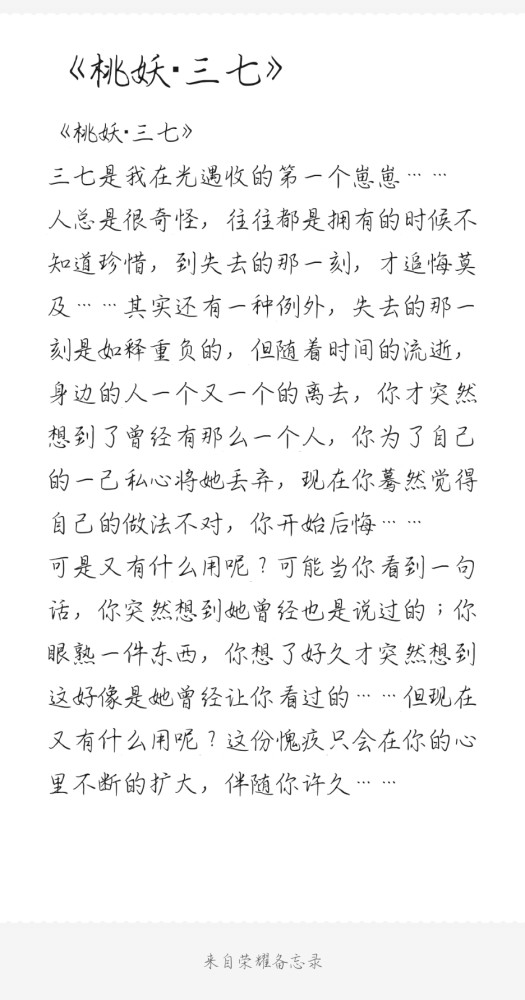 《桃妖·三七》
《桃妖·三七》
三七是我在光遇收的第一个崽崽……
人总是很奇怪，往往都是拥有的时候不
知道珍惜，到失去的那一刻，才追悔莫
及……其实还有一种例外，失去的那一
刻是如释重负的，但随着时间的流逝，
身边的人一个又一个的离去，你才突然
想到了曾经有那么一个人，你为了自己
的一己私心将她丢弃，现在你蓦然觉得
自己的做法不对，你开始后悔……
可是又有什么用呢？可能当你看到一句
话，你突然想到她曾经也是说过的；你
眼熟一件东西，你想了好久才突然想到
这好像是她曾经让你看过的……但现在
又有什么用呢？这份愧疚只会在你的心
里不断的扩大，伴随你许久……
来自荣耀备忘录